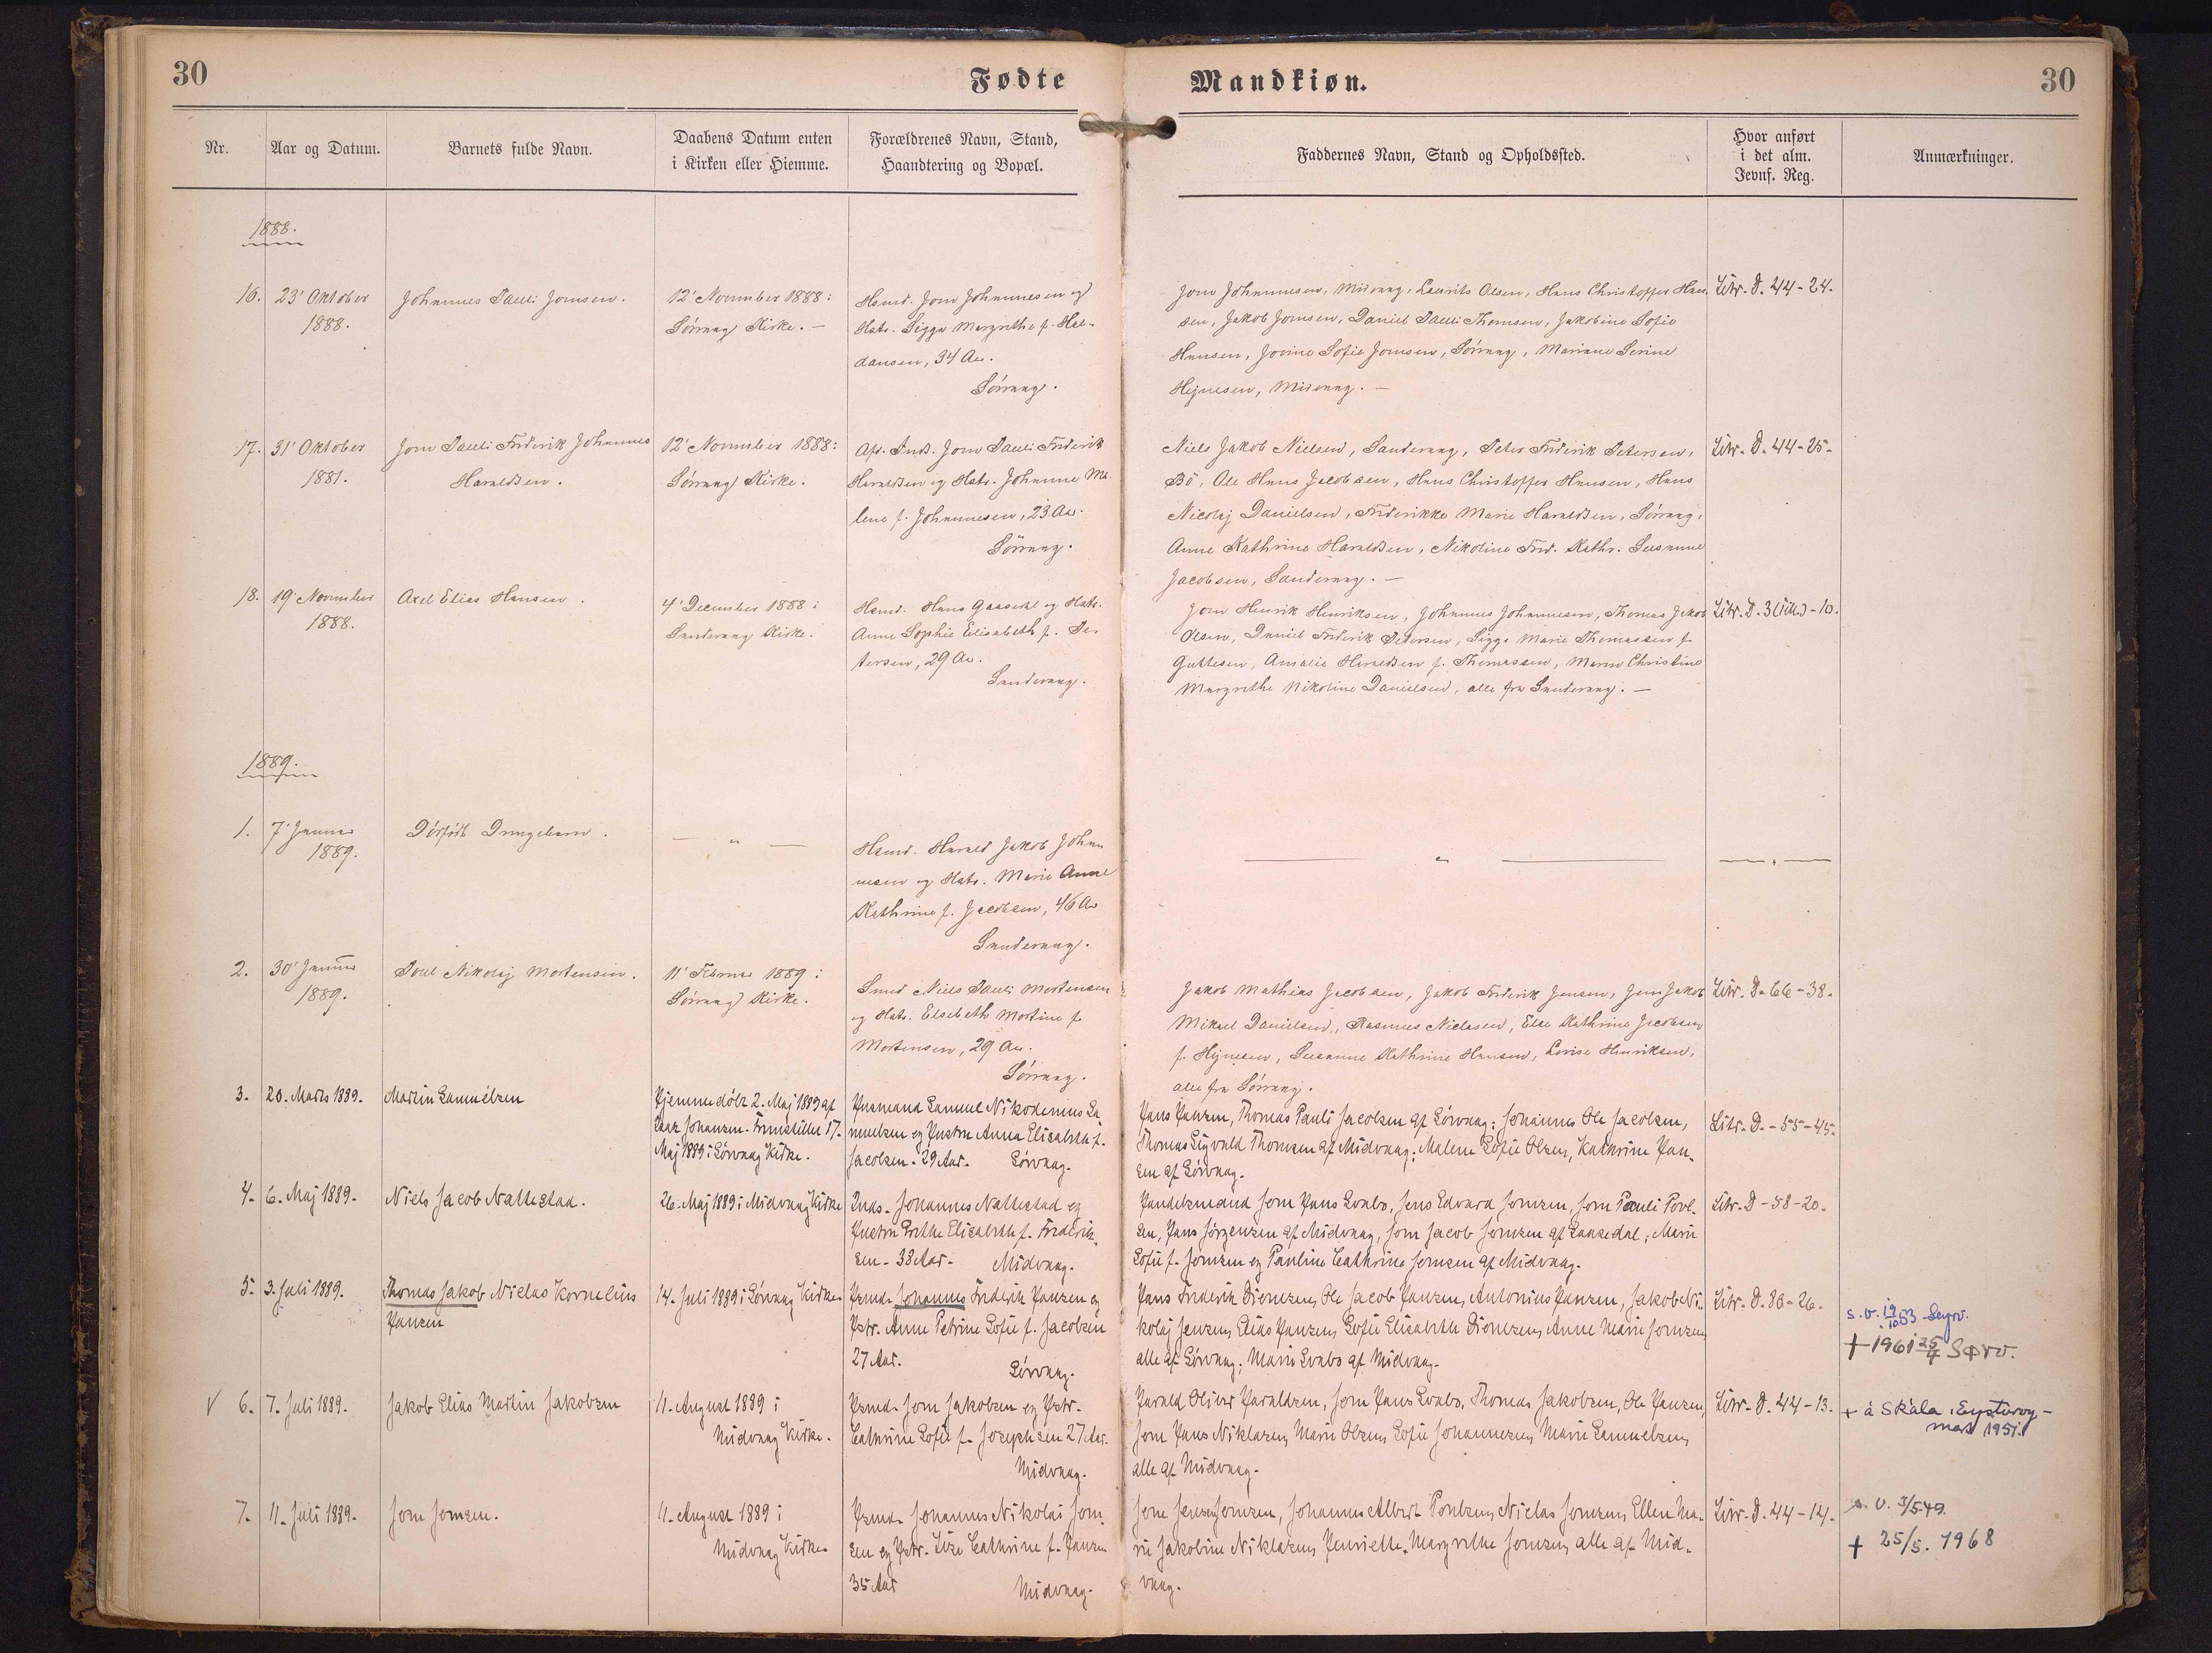 30
Fødte
Mandkiøn.
30
Nr.
Aar og Datum.
Barnets fulde Navn.
Daabens Datum enten
i Kirken eller Hiemme.
Forældrenes Navn, Stand,
Haandtering og Bopæl.
Faddernes Navn, Stand og Opholdssted.
Hvor anført
i det alm.
Jevnf. Reg.
Anmærkninger.
1888.
16.
23' Oktober
1888.
Johannes Pauli Jomsen.
12' November 1888 :
Sörvaag Kirke. —
Hsmd. Jom Johannesen og
Hstr. Sigga Margrethe f. Hal-
dansen, 34 Aar.
Sörvaag.
Jom Johannesen, Midvaag, Laurits Olsen, Hans Christoffer Han-
sen, Jakob Jomsen, Daniel Pauli Thomsen, Jakobine Sofie
Hansen, Jovine Sofie Jomsen, Sörvaag, Mariane Serine
Hejnesen, Midvaag. —
Litr. D. 44-24.
17.
31' Oktober
1881.
Jom Pauli Frederik Johannes
Haraldsen.
12' November 1888 :
Sörvaag Kirke.
Afd. Inds. Jom Pauli Frederik
Haraldsen og Hstr. Johanne Ma-
lene f. Johannesen, 23 Aar.
Sörvaag.
Niels Jakob Nielsen, Sandevaag, Peter Frederik Petersen,
Bö, Ole Hans Jacobsen, Hans Christoffer Hansen, Hans
Nicolaj Danielsen, Frederikke Marie Haraldsen, Sörvaag,
Anne Kathrine Haraldsen, Nikoline Fred. Kathr. Susanne
Jacobsen, Sandevaag. —
Litr. D. 44-25.
18.
19' November
1888.
Axel Elias Hansen.
4' December 1888 i
Sandevaag Kirke.
Hsmd. Hans Gaasedal og Hstr.
Anne Sophie Elisabeth f. Pe-
tersen, 29 Aar.
Sandevaag.
Jom Henrik Henriksen, Johannes Johannesen, Thomas Jakob
Olsen, Daniel Frederik Petersen, Sigga Marie Thomassen f.
Guttesen, Amalie Haraldsen f. Thomassen, Maren Christine
Margrethe Nikoline Danielsen, alle fra Sandevaag. —
Litr. D. 3 -10.
1889.
1.
7' Januar
1889.
Dödfödt Drengebarn.
— " —
Hsmd. Harald Jakob Johan-
nesen og Hstr. Marie Anne
Kathrine f. Jacobsen, 46 Aar
Sandevaag.
— " —
— " —
2.
30' Januar
1889.
Poul Nikolaj Mortensen.
11' Februar 1889 i
Sörvaag Kirke.
Smed Niels Pauli Mortensen
og Hstr. Elsebeth Mortine f.
Mortensen, 29 Aar.
Sörvaag.
Jakob Mathias Jacobsen, Jakob Frederik Jensen, Jens Jakob
Mikael Danielsen, Rasmus Niclasen, Else Kathrine Jacobsen
f. Hejnesen, Susanne Kathrine Hansen, Lovise Henriksen,
alle fra Sörvaag.
Litr. D. 66-38.
3.
20. Marts 1889.
Martin Samuelsen
Hjemmedöbt 2. Maj 1889 af
Isak Johansen. Fremstillet 17.
Maj 1889 i Sörvaag Kirke.
Husmand Samuel Nikodemus Sa-
muelsen og Hustru Anna Elisabeth f.
Jacobsen. 29 Aar. Sörvaag.
Hans Hansen, Thomas Pauli Jacobsen af Sörvaag; Johannes Ole Jacobsen,
Thomas Sigvald Thomsen af Midvaag; Malene Sofie Olsen, Kathrine Han-
sen af Sörvaag.
Litr. D. - 55-45.
4.
6. Maj 1889.
Niels Jacob Nattestad.
26. Maj 1889 i Midvaag Kirke
Inds. Johannes Nattestad og
Hustru Grethe Elisabeth f. Frederik-
sen. 38 Aar. Midvaag.
Handelsmand Jom Hans Svabo, Jens Edvard Jomsen, Jom Pauli Povl-
sen, Hans Jörgensen af Midvaag, Jom Jacob Jomsen af Gaasedal; Marie
Sofie f. Jomsen og Pauline Cathrine Jomsen af Midvaag.
Litr. D - 58-20.
5.
3. Juli 1889.
Thomas Jakob Niclas Kornelius
Hansen
14. Juli 1889 i Sörvaag Kirke.
Hsmd. Johannes Frederik Hansen og
Hstr. Anne Petrine Sofie f. Jacobsen
27 Aar. Sörvaag.
Hans Frederik Dionesen, Ole Jacob Hansen, Antonius Hansen, Jakob Ni-
kolaj Jensen, Elias Hansen, Sofie Elisabeth Dionesen, Anne Marie Jomsen
alle af Sörvaag; Marie Svabo af Midvaag.
Litr. D. 80-26.
s.v. 19/10 53
+ 1961 25/4 Sørv.
√
6.
7. Juli 1889.
Jakob Elias Martin Jakobsen
11. August 1889 i
Midvaag Kirke.
Hsmd. Jom Jakobsen og Hstr.
Cathrine Sofie f. Josephsen 27 Aar.
Midvaag.
Harald Oliver Haraldsen, Jom Hans Svabo, Thomas Jakobsen, Ole Hansen,
Jom Hans Niklasen, Marie Olsen, Sofie Johannesen, Marie Samuelsen,
alle af Midvaag.
Litr. D. 44-13.
+ á Skála, Eysturoy -
mars 1951.
7.
11. Juli 1889.
Jom Jomsen.
11. August 1889 i
Midvaag Kirke.
Hsmd. Johannes Nikolai Jom-
sen og Hstr. Lise Cathrine f. Hansen
35 Aar Midvaag.
Jom Jensen Jomsen, Johannes Albert Poulsen, Niclas Jomsen, Ellen Ma-
rie Jakobine Niklasen, Henriette Margrethe Jomsen, alle af Mid-
vaag.
Litr. D. 44-14.
s. v. 3/5 49.
+ 25/5. 1968